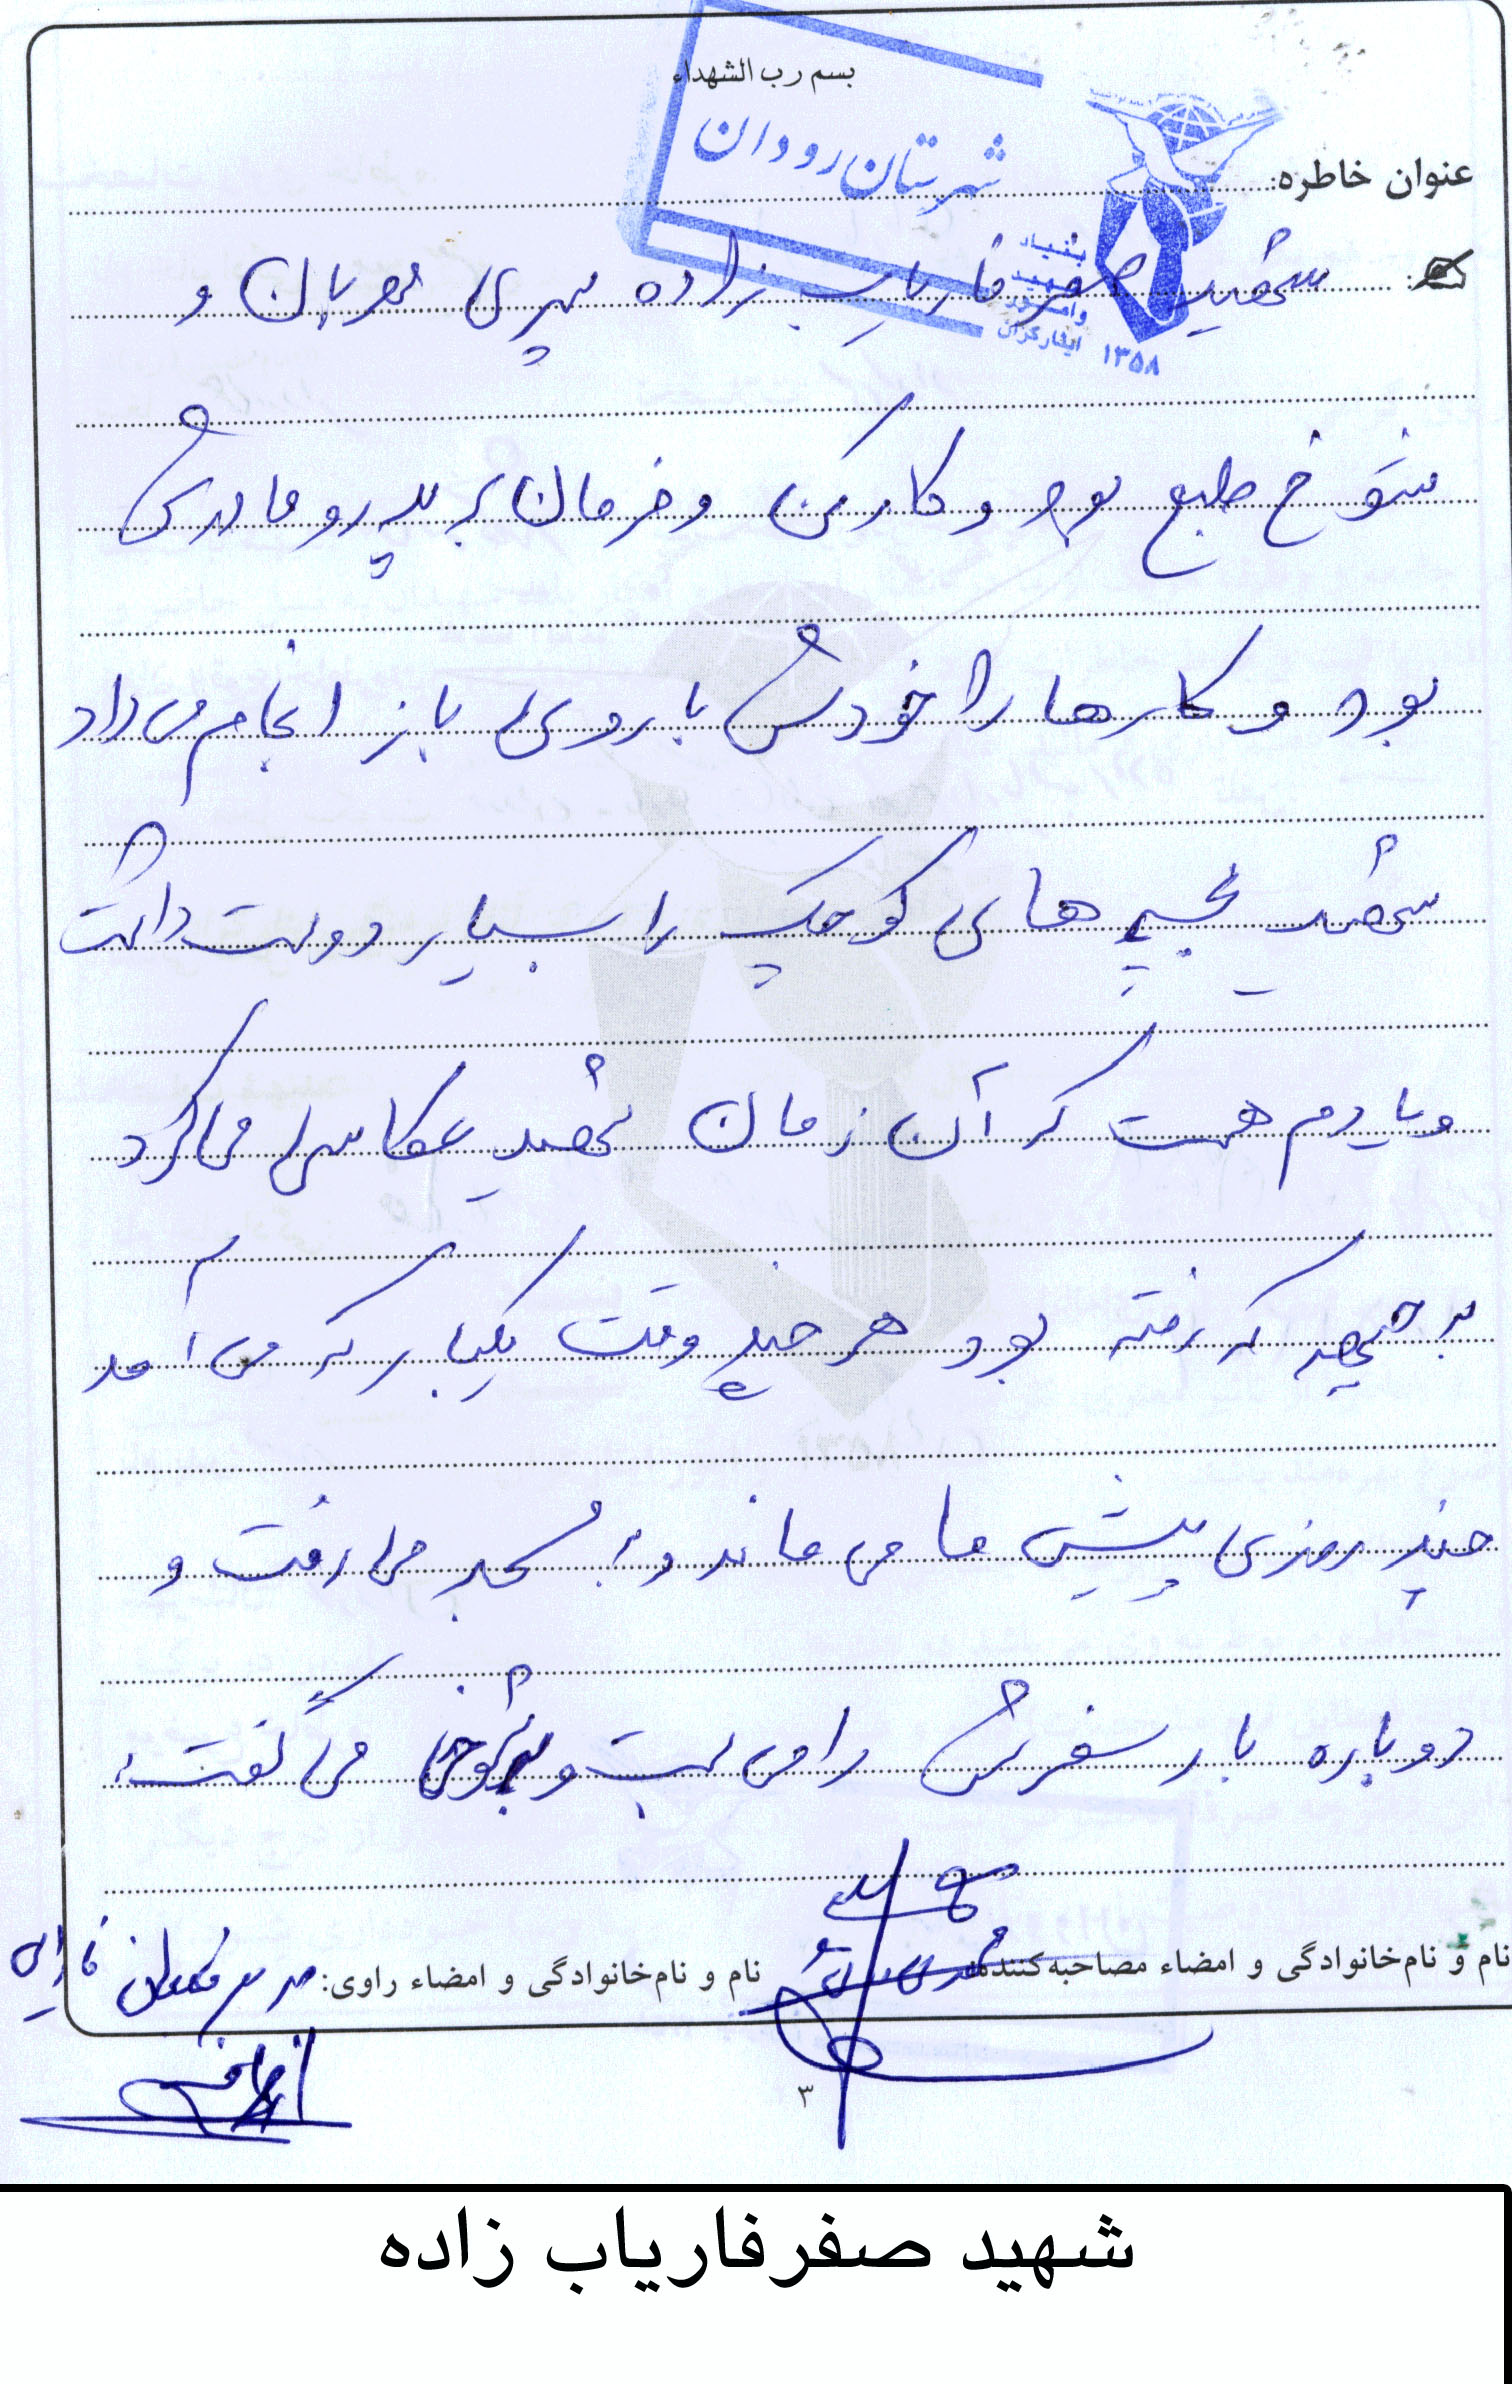 بسم رب الشهداء
شهرستان رودان
عنوان خاطره:
بنیاد
شهید
وامور
ایثارگران ۱۳۵۸
شهید صفر فاریاب زاده پسری مهربان و
شوخ طبع بود و کارکن و فرمان بر پدر و مادرش
بود و کارها را خودش با روی باز انجام می داد
شهید بچه های کوچک را بسیار دوست داشت
و یادم هست که آن زمان شهید عکاسی می کرد
به جبهه که رفته بود هر چند وقت یکبار که می آمد
چند روزی پیش ما می ماند و به مسجد می رفت و
دوباره بار سفرش را می بست و بشوخی می گفت:
نام و نام‌خانوادگی و امضاء مصاحبه‌کننده:
نام و نام‌خانوادگی و امضاء راوی:
۳
شهید صفرفاریاب زاده